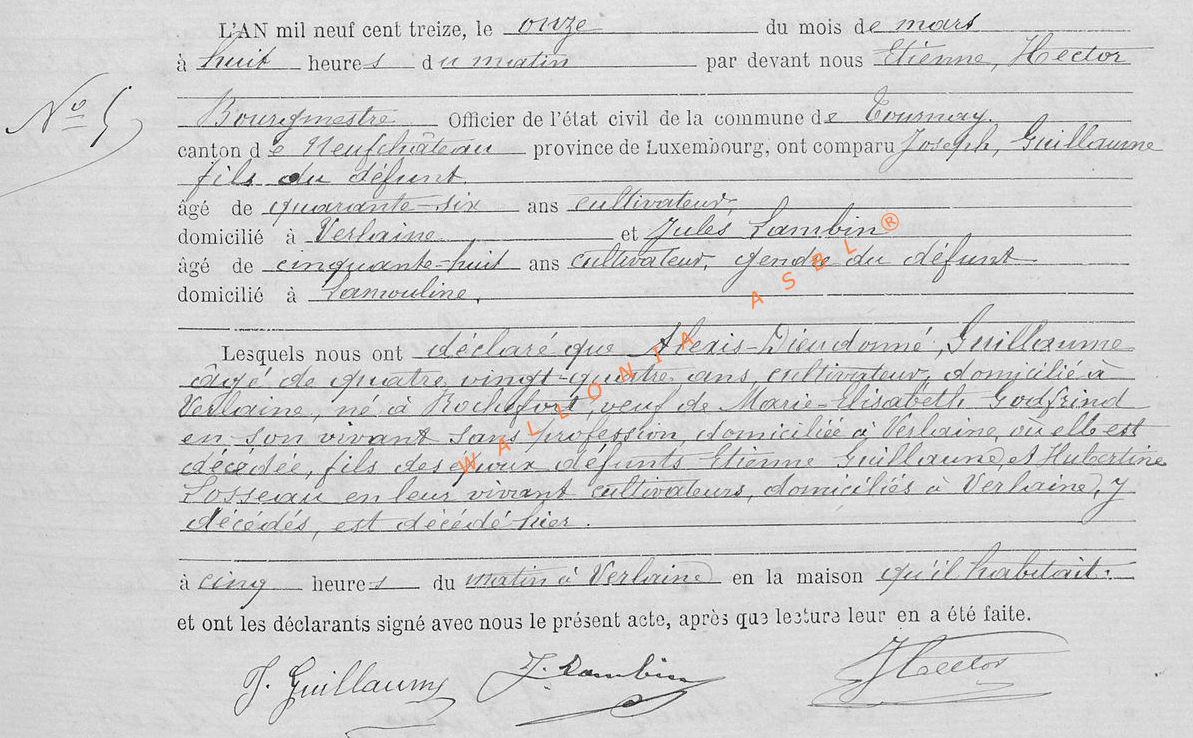 L'AN mil neuf cent treize, le onze du mois de mars
à huit heures du matin par devant nous Etienne, Hector
N° 5
Bourgmestre Officier de l'état civil de la commune de Tournay.
canton de Neufchâteau province de Luxembourg, ont comparu Joseph, Guillaume
fils du défunt
âgé de quarante-six ans cultivateur,
domicilié à Verlaine et Jules Lambin
âgé de cinquante-huit ans cultivateur, gendre du défunt
domicilié à Lamouline,
Lesquels nous ont déclaré que Alexis-Dieudonné, Guillaume
âgé de quatre vingt-quatre ans, cultivateur, domicilié à
Verlaine, né à Rochefort, veuf de Marie-Elisabeth Godfrind
en son vivant sans profession, domiciliée à Verlaine, où elle est
décédée, fils des époux défunts Etienne Guillaume, et Hubertine
Losseau en leur vivant cultivateurs, domiciliés à Verlaine, y
décédés, est décédé hier.
à cinq heures du matin à Verlaine en la maison qu'il habitait.
et ont les déclarants signé avec nous le présent acte, après que lecture leur en a été faite.
J. Guillaume J. Lambin Hector
WALLONIA ASBL ®